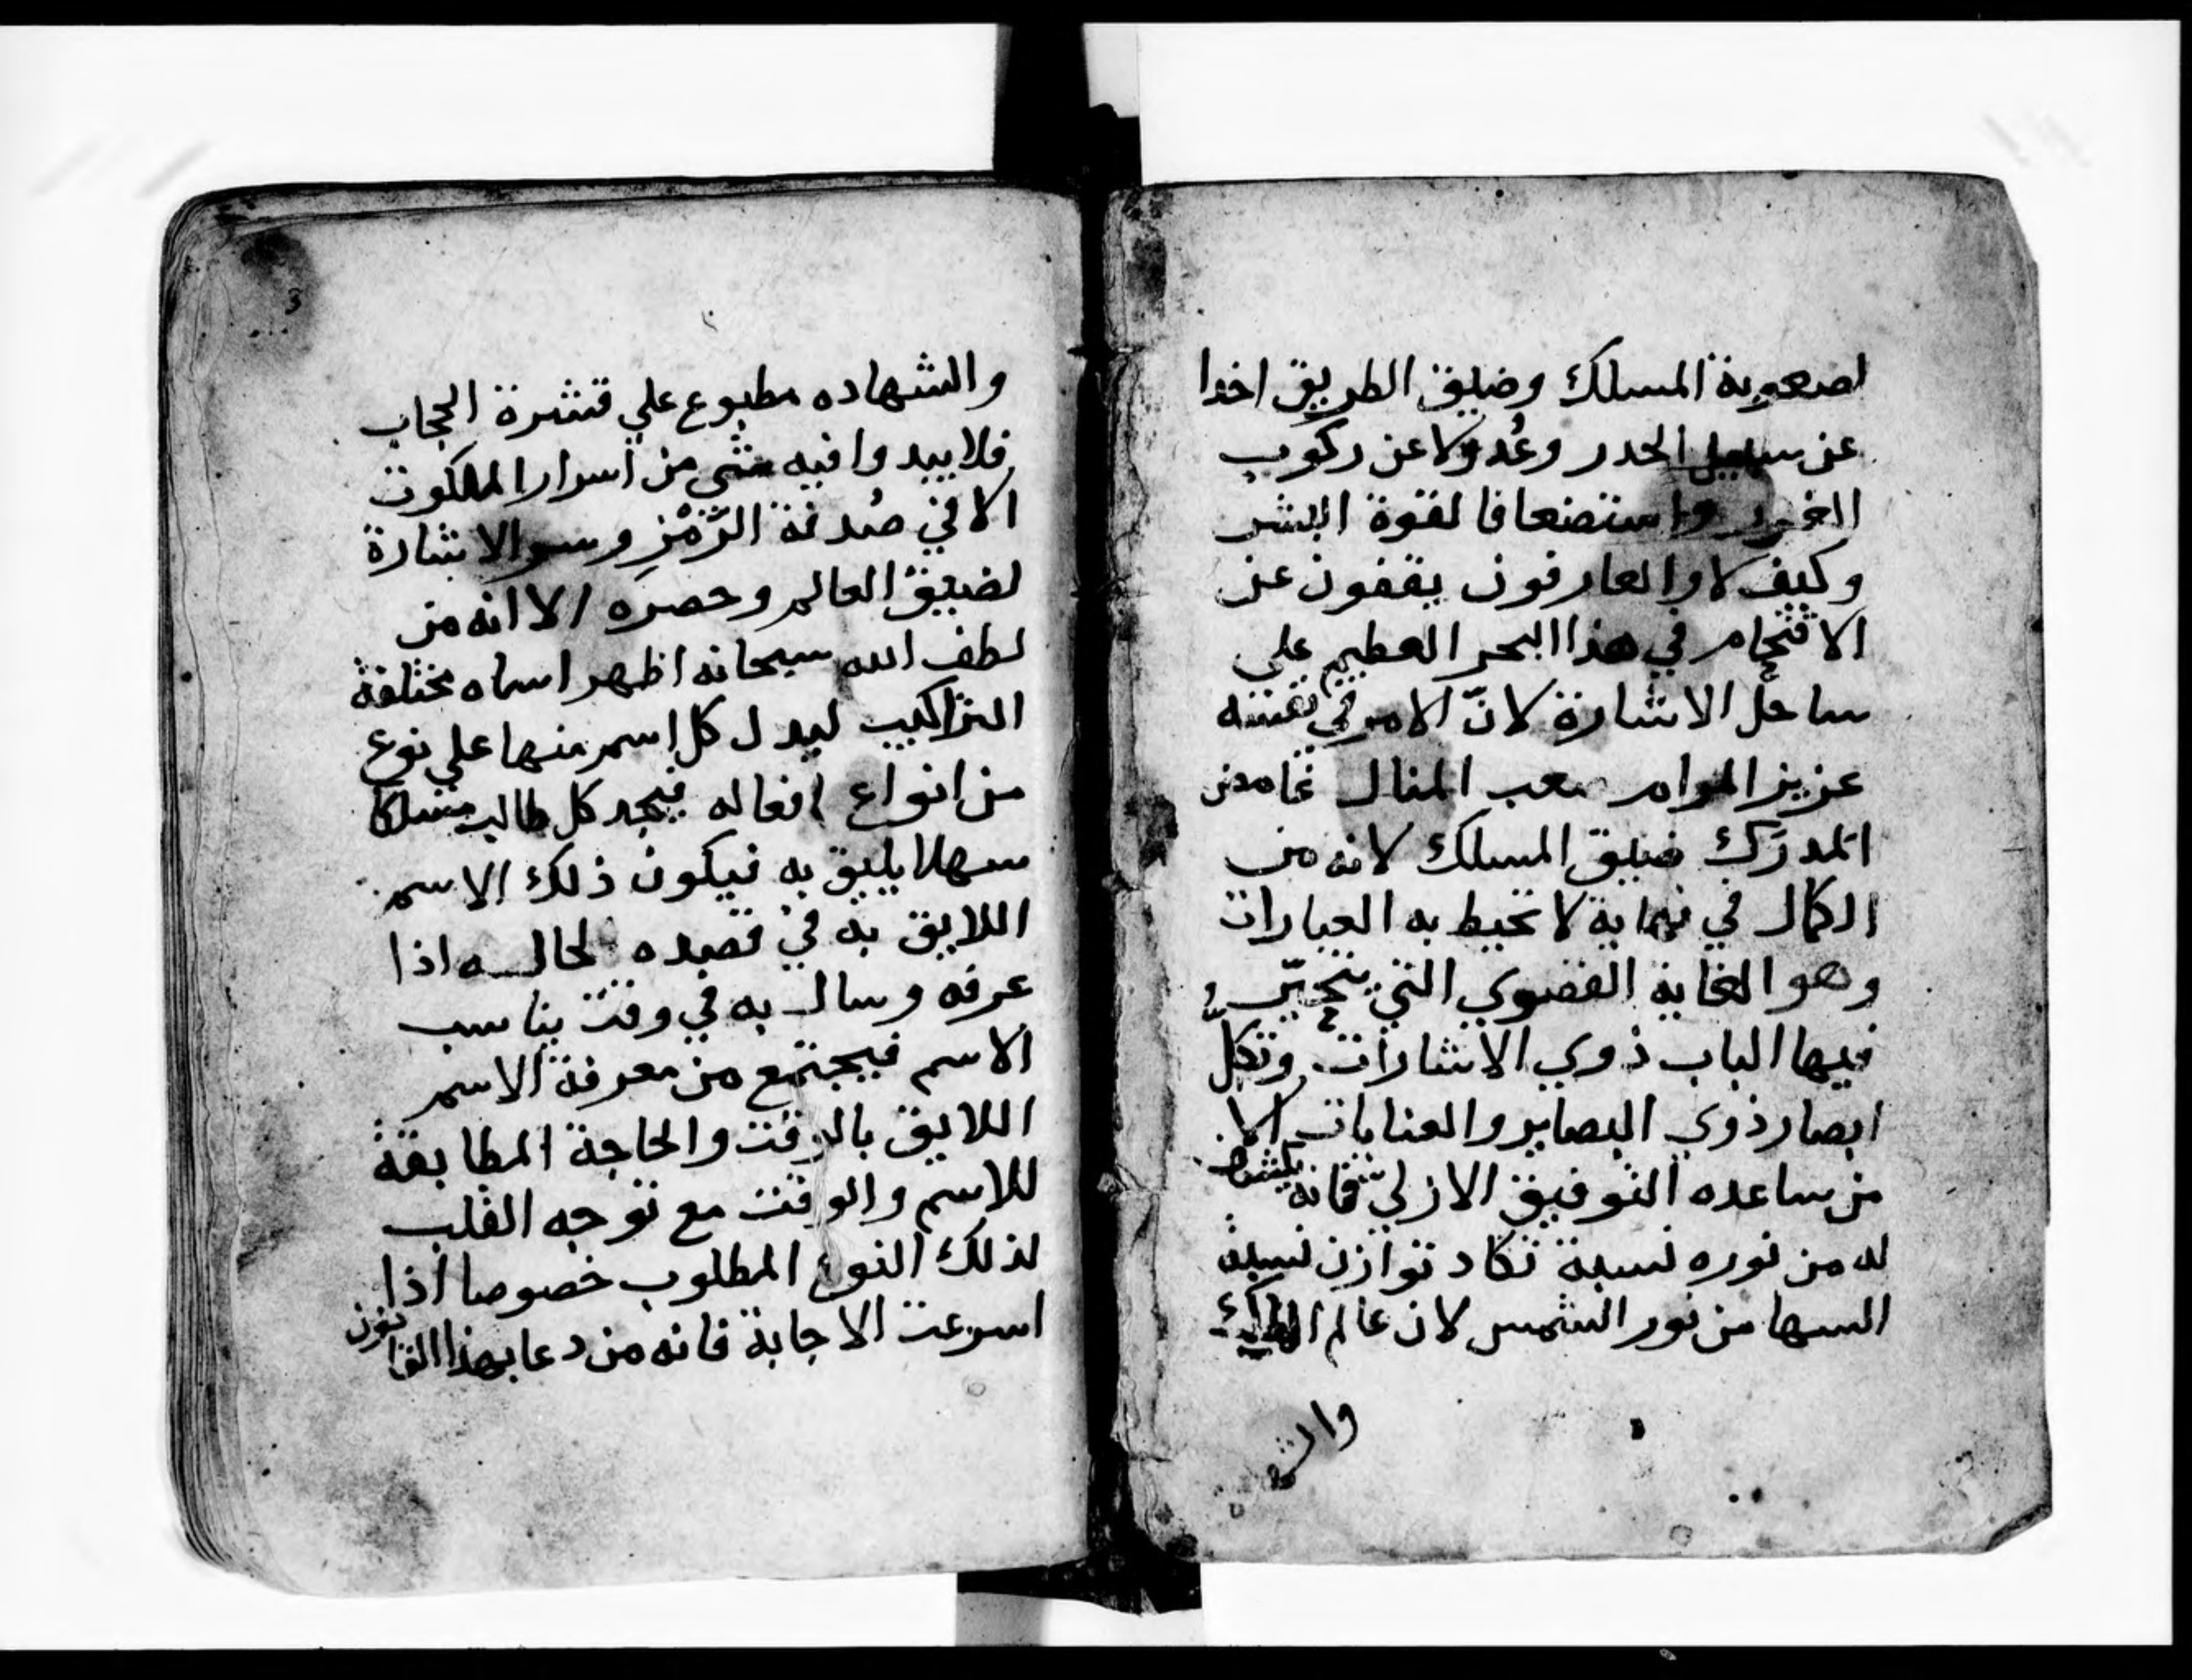 لصعوبة المسلك وضيق الطريق اخدا
عن سبيل الحدر وعُدولا عن ركوب
الغرر واستضعافا لقوة البشر
وكيف لا والعارفون يقفون عن
الاقتحام في هذا البحر العظيم علي
ساحل الاشارة لانّ الامر في نفسه
عزيز المرام صعب المنال غامض
المدرَك ضيق المسلك لانه من
الكمال في نهاية لا تحيط به العبارات
وهو الغاية القصوي التي تتحيّر
فيها الباب ذوي الاشارات وتكلّ
ابصار ذوي البصاير والعنايات الا
من ساعده التوفيق الازليّ فانه
له من نوره نسبة تكاد توازن نسبة
السها من نور الشمس لان عالم الملك
والشهاده مطبوع علي قشرة الحجاب
فلا يبدوا فيه شي من اسرار الملكوت
الا في صُدفة الرَّمْز وستر الاشارة
لضيق العالم وحصره الا انه من
لطف الله سبحانه اظهر اسماه مختلفة
التراكيب ليدل كل اسم منها علي نوع
من انواع افعاله فيجد كل طالب مسلكا
سهلا يليق به فيكون ذلك الاسم
اللايق به في قصده لحاله اذا
عرفه وسال به في وقت يناسب
الاسم فيجتمع من معرفة الاسم
اللايق بالوقت والحاجة المطابقة
للاسم والوقت مع توجه القلب
لذلك النوع المطلوب خصوصا اذا
اسرعت الاجابة فانه من دعا بهذا القانون